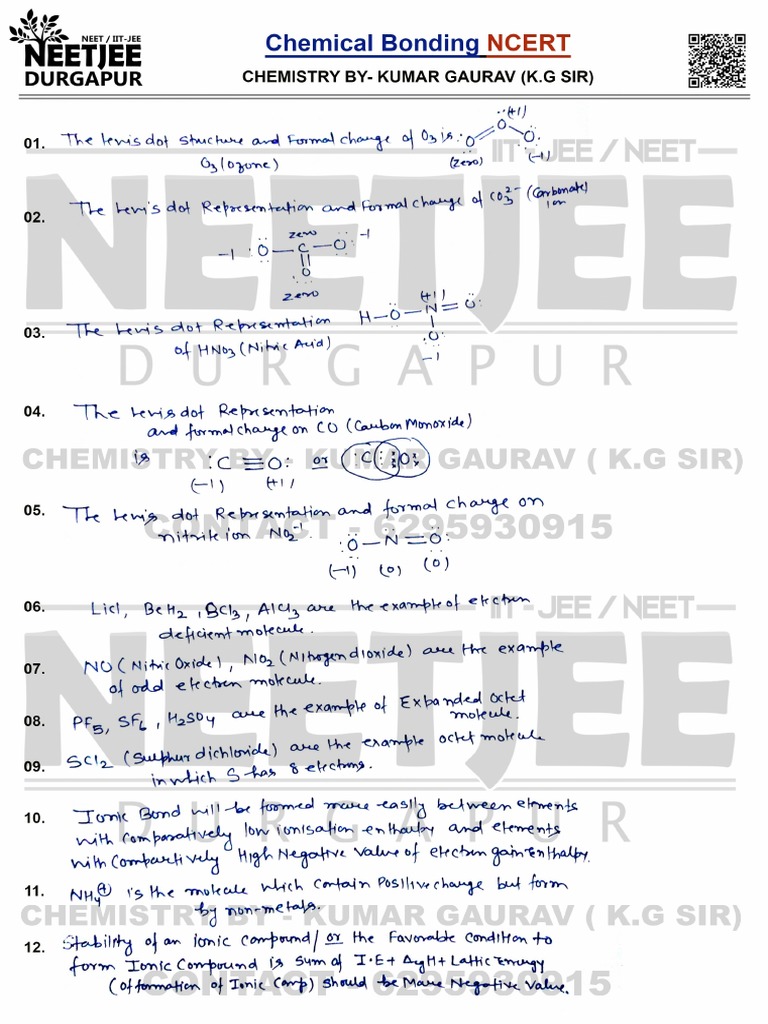 NEET / IIT-JEE
NEETJEE
DURGAPUR
Chemical Bonding NCERT
CHEMISTRY BY- KUMAR GAURAV (K.G SIR)
01. The Lewis dot structure and Formal charge of O3 is :O=O-O: (+1)
O3 (Ozone) (zero) (-1)
02. The Lewis dot Representation and Formal charge of CO3^2- (Carbonate) ion
zero
-1 :O-C-O: -1
||
O
zero
03. The Lewis dot Representation H-O-N=O: (+1)
of HNO3 (Nitric Acid) :O:
-1
04. The Lewis dot Representation
and formal charge on CO (Carbon Monoxide)
is :C≡O: or :C⋮⋮O:
(-1) (+1)
05. The Lewis dot Representation and formal charge on
nitrite ion NO2^-1. :O-N=O:
(-1) (0) (0)
06. LiCl, BeH2, BCl3, AlCl3 are the example of electron
deficient molecule.
07. NO (Nitric Oxide), NO2 (Nitrogen dioxide) are the example
of odd electron molecule.
08. PF5, SF6, H2SO4 are the example of Expanded Octet
molecule.
09. SCl2 (Sulphur dichloride) are the example octet molecule
in which S has 8 electrons.
10. Ionic Bond will be formed more easily between elements
with comparatively low ionisation enthalpy and elements
with compartively High Negative value of electron gain Enthalpy.
11. NH4⊕ is the molecule which contain Positive charge but form
by non-metals.
12. Stability of an ionic compound/ or the Favorable condition to
form Ionic Compound is sum of I.E + ΔegH + Lattic Energy
(of formation of Ionic Comp) should be More Negative value.
IIT - JEE / NEET
NEETJEE
DURGAPUR
CHEMISTRY BY - KUMAR GAURAV ( K.G SIR)
CONTACT - 6295930915
IIT - JEE / NEET
NEETJEE
DURGAPUR
CHEMISTRY BY - KUMAR GAURAV ( K.G SIR)
CONTACT - 6295930915